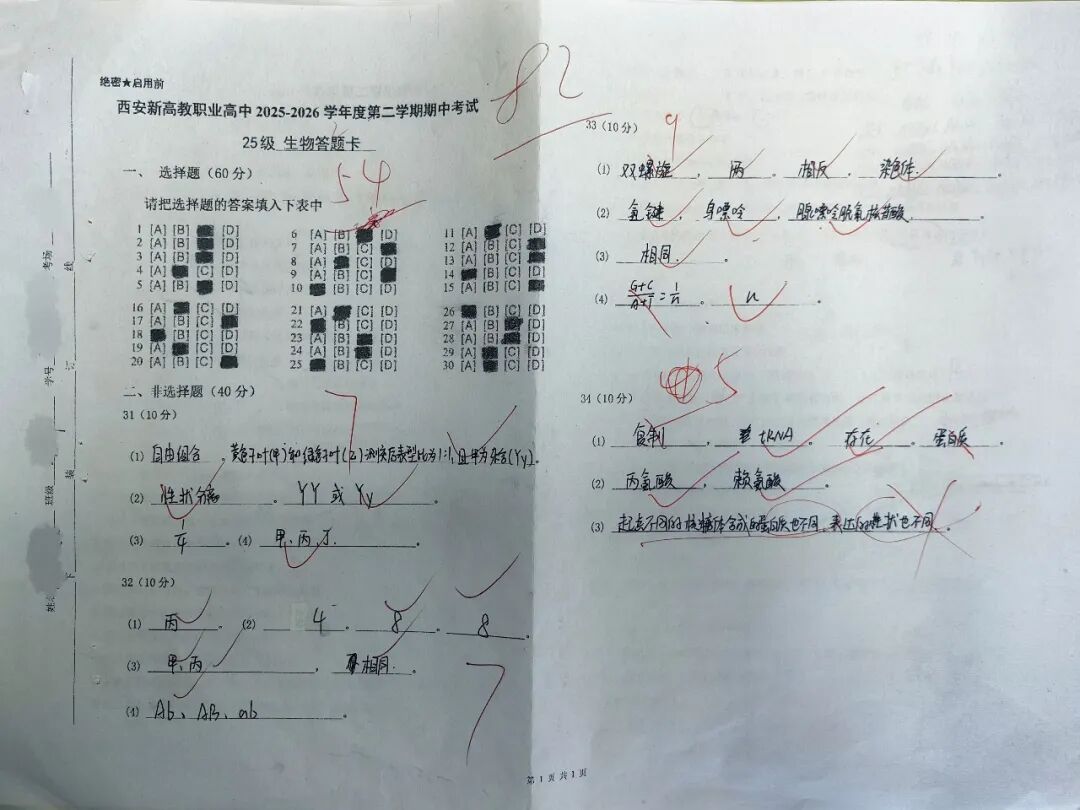 绝密★启用前
西安新高教职业高中 2025-2026 学年度第二学期期中考试
25级 生物答题卡
82
一、 选择题（60分）
54
请把选择题的答案填入下表中
1 [A] [B] [D]
2 [A] [B] [D]
3 [A] [B] [D]
4 [A] [C] [D]
5 [A] [B] [D]
6 [A] [B] [D]
7 [A] [B] [C]
8 [A] [C] [D]
9 [A] [B] [C]
10 [B] [C] [D]
11 [A] [C] [D]
12 [A] [B] [C]
13 [A] [B] [C]
14 [B] [C] [D]
15 [A] [B] [C]
16 [A] [C] [D]
17 [A] [B] [C]
18 [B] [C] [D]
19 [A] [C] [D]
20 [A] [B] [C]
21 [A] [C] [D]
22 [B] [C] [D]
23 [A] [B] [D]
24 [A] [B] [D]
25 [B] [C] [D]
26 [B] [C] [D]
27 [A] [B] [D]
28 [A] [B] [D]
29 [A] [C] [D]
30 [A] [C] [D]
二、非选择题（40分）
7
31（10分）
（1） 自由组合 。 黄子叶(甲)和绿子叶(乙)测交后表型比为1:1, 且甲为杂合(Yy)。
（2） 性状分离 。 YY 或 Yy 。
（3） 1/4 。（4） 甲、丙、丁 。
32（10分）
（1） 丙 。（2） 4 . 8 . 8 .
（3） 甲、丙 , 相同. 。
7
（4） Ab、AB、ab 。
33（10分）
9
（1） 双螺旋 , 两 , 相反 , 染色体. 。
（2） 氢键 , 鸟嘌呤 , 腺嘌呤脱氧核苷酸. 。
（3） 相同. 。
（4） G+C/A+T=1/n 。 n 。
5
34（10分）
（1） 复制 , tRNA 。 存在 。 蛋白质 。
（2） 丙氨酸 , 赖氨酸 。
（3） 不同的核糖体合成的蛋白质也不同, 表达的性状也不同 。
考场
学号
班级
线
订
装
下
第 1 页 共 1 页